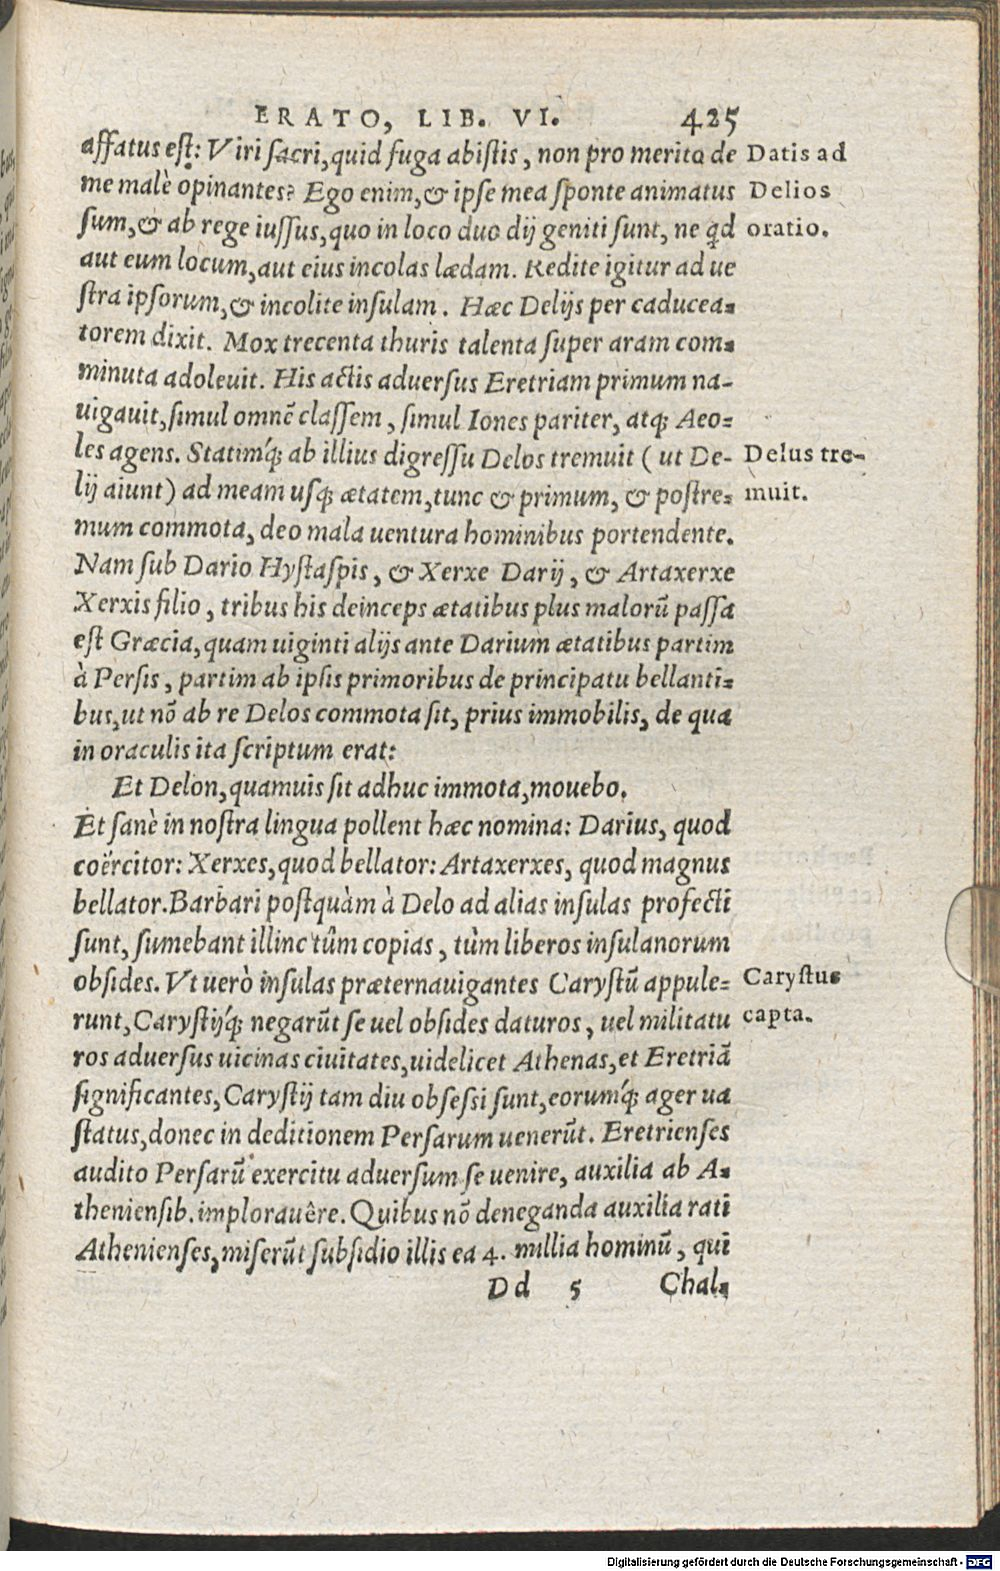 ERATO, LIB. VI. 425
affatus eſt: Viri ſacri, quid fuga abiſtis, non pro merito de
me malè opinantes? Ego enim, & ipſe mea ſponte animatus
ſum, & ab rege iuſſus, quo in loco duo dij geniti ſunt, ne qd
aut eum locum, aut eius incolas lædam. Redite igitur ad ue
ſtra ipſorum, & incolite inſulam. Hæc Delijs per caducea-
torem dixit. Mox trecenta thuris talenta ſuper aram com-
minuta adoleuit. His actis aduerſus Eretriam primum na-
uigauit, ſimul omnē claſſem, ſimul Iones pariter, atq; Aeo-
les agens. Statimq́; ab illius digreſſu Delos tremuit (ut De-
lij aiunt) ad meam uſq; ætatem, tunc & primum, & poſtre-
mum commota, deo mala uentura hominibus portendente.
Nam ſub Dario Hyſtaſpis, & Xerxe Darij, & Artaxerxe
Xerxis filio, tribus his deinceps ætatibus plus malorū paſſa
eſt Græcia, quam uiginti alijs ante Darium ætatibus partim
à Perſis, partim ab ipſis primoribus de principatu bellanti-
bus, ut nō ab re Delos commota ſit, prius immobilis, de qua
in oraculis ita ſcriptum erat:
Et Delon, quamuis ſit adhuc immota, mouebo.
Et ſanè in noſtra lingua pollent hæc nomina: Darius, quod
coërcitor: Xerxes, quod bellator: Artaxerxes, quod magnus
bellator. Barbari poſtquàm à Delo ad alias inſulas profecti
ſunt, ſumebant illinc tûm copias, tùm liberos inſulanorum
obſides. Vt uerò inſulas præternauigantes Caryſtū appule-
runt, Caryſtijq́; negarūt ſe uel obſides daturos, uel militatu
ros aduerſus uicinas ciuitates, uidelicet Athenas, et Eretriā
ſignificantes, Caryſtij tam diu obſeſſi ſunt, eorumq́; ager ua
ſtatus, donec in deditionem Perſarum uenerūt. Eretrienſes
audito Perſarū exercitu aduerſum ſe uenire, auxilia ab A-
thenienſib. implorauêre. Quibus nō deneganda auxilia rati
Athenienſes, miſerūt ſubſidio illis ea 4. millia hominū, qui
Dd 5 Chal-
Datis ad
Delios
oratio.
Delus tre-
muit.
Caryſtus
capta.
Digitalisierung gefördert durch die Deutsche Forschungsgemeinschaft - DFG